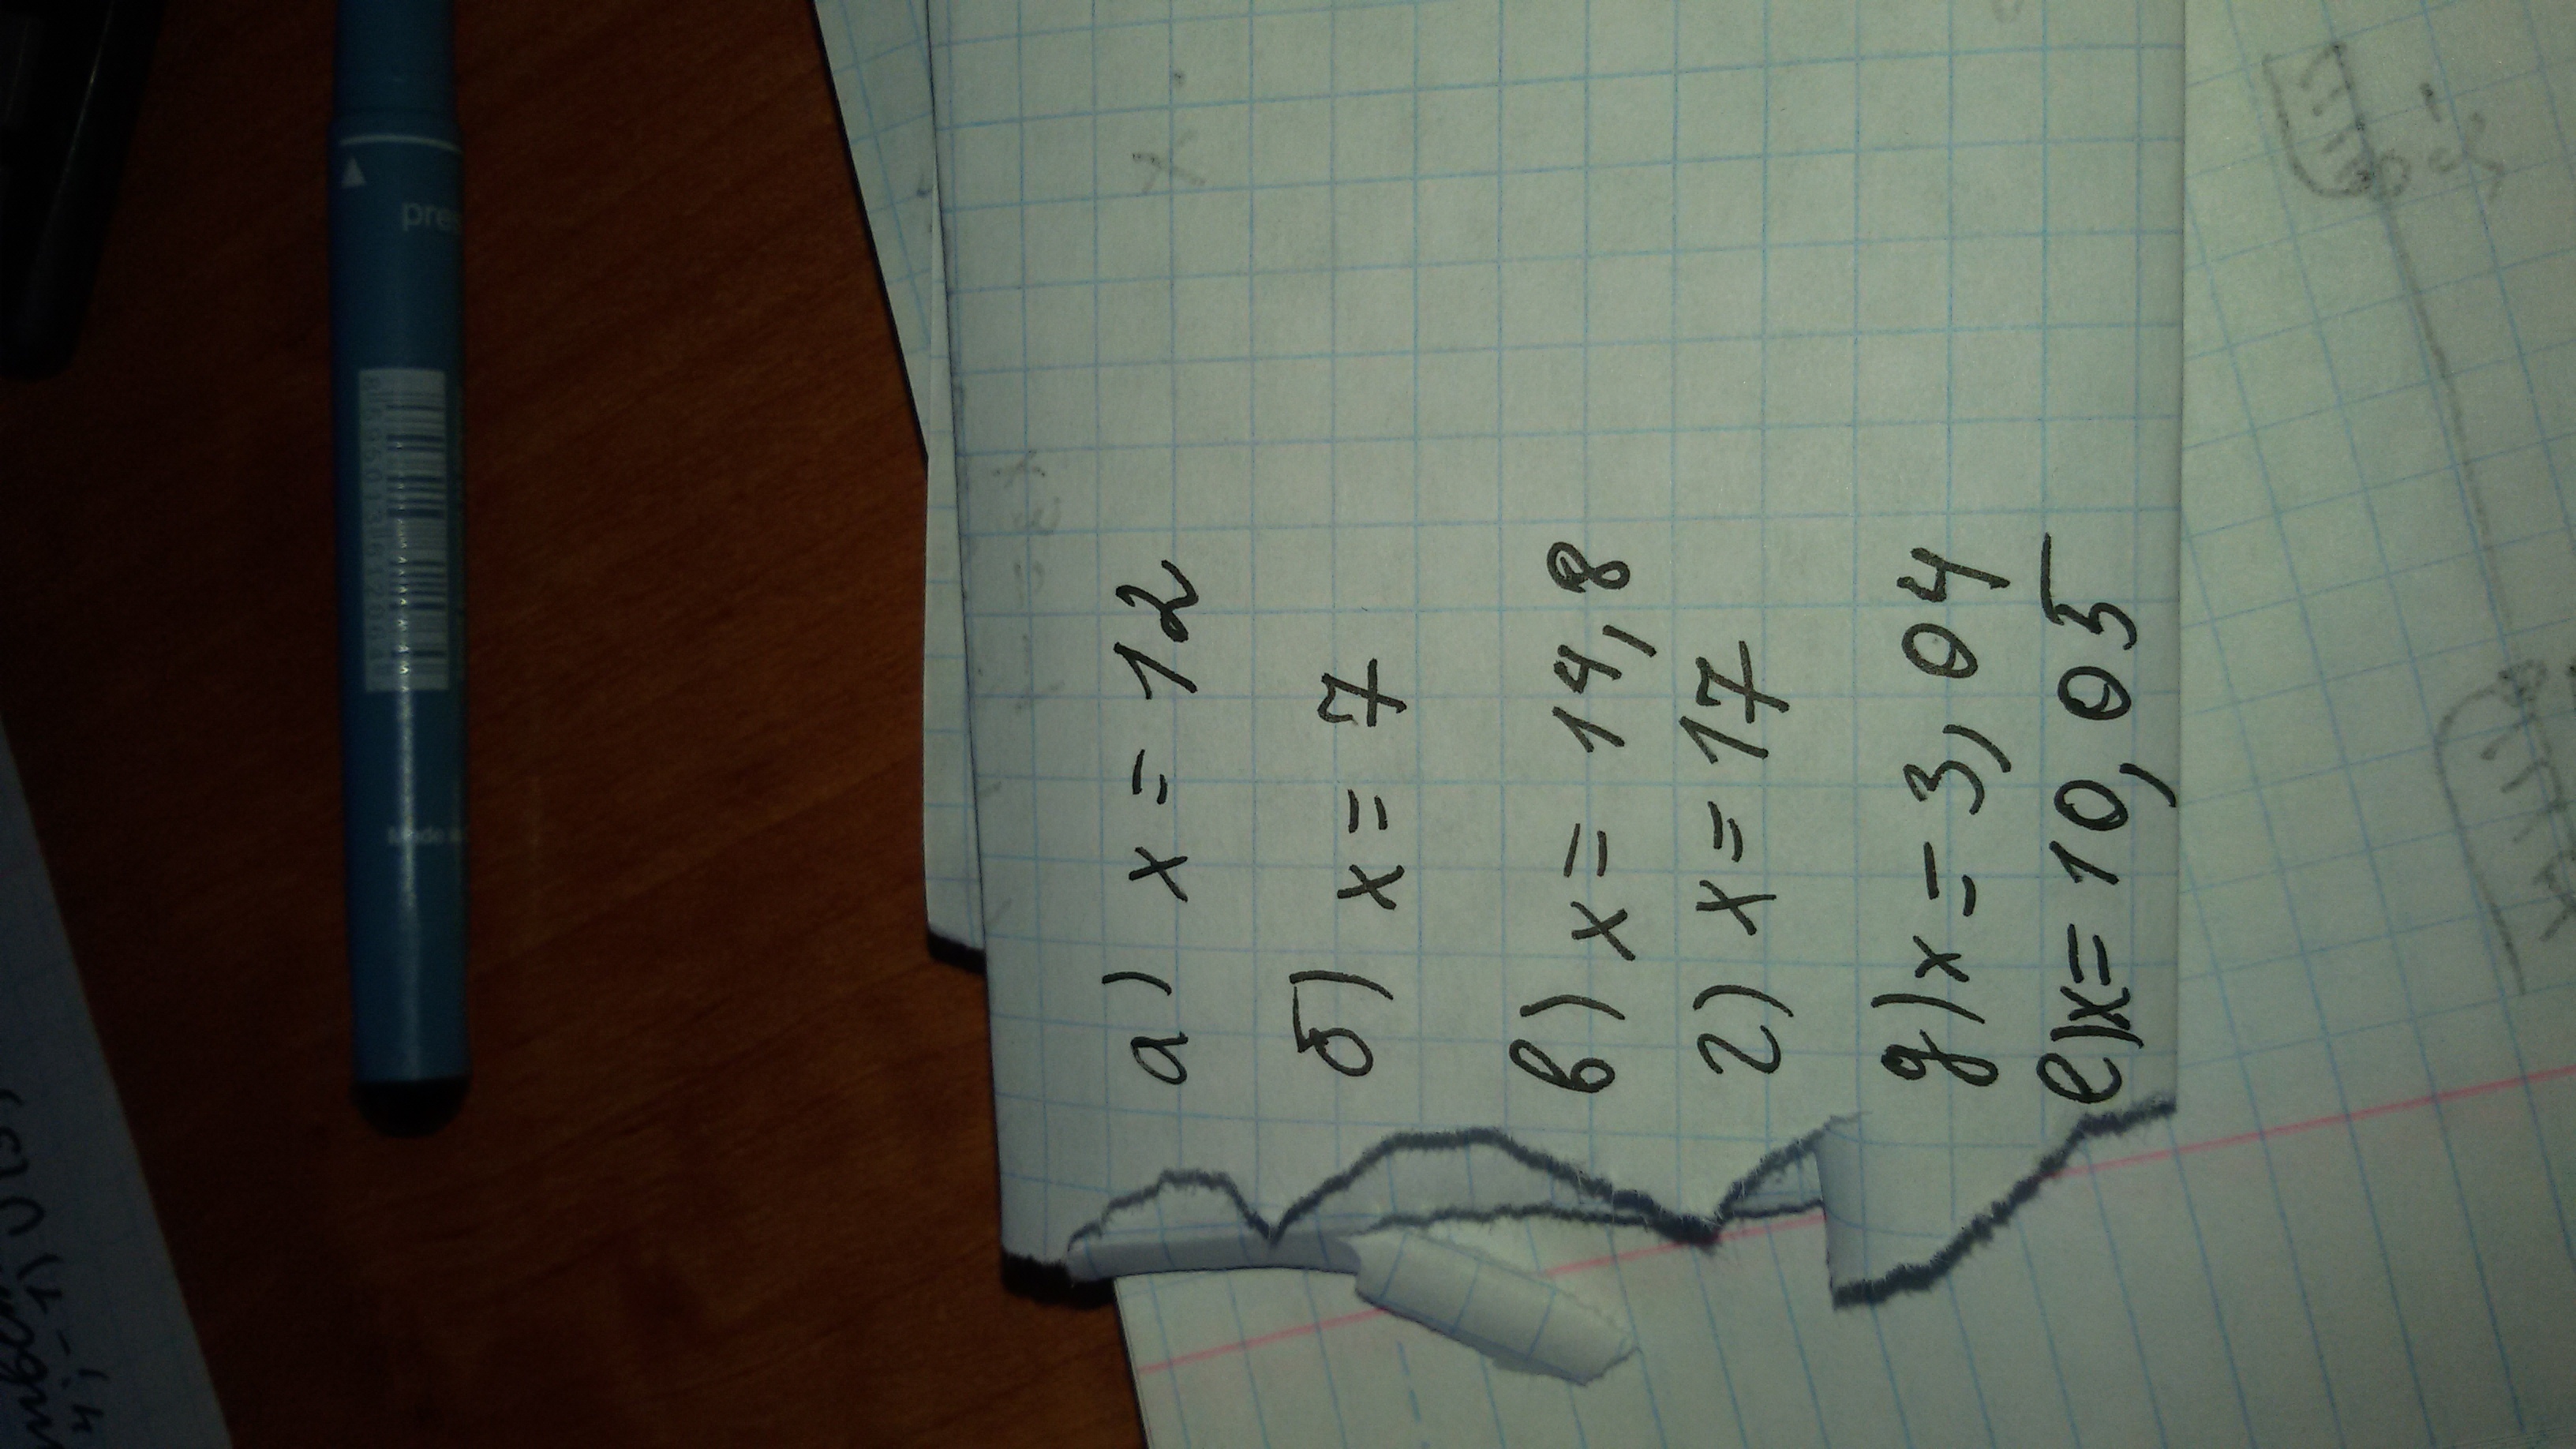 а) x = 12
б) x = 7
в) x = 14,8
г) x = 17
д) x = 3,04
е) x = 10,05